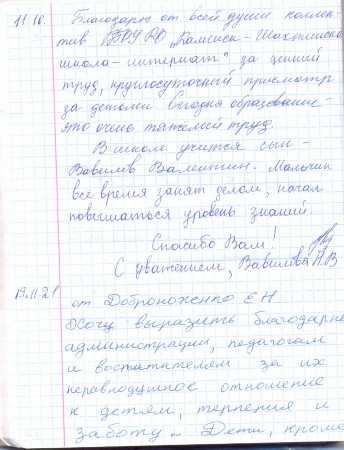 11.10. Благодарю от всей души коллек-
тив ГБОУ РО "Каменск-Шахтинск
школа-интернат" за ценний
труд, круглосуточный присмотр
за детьми. Сегодня образование -
это очень тяжёлый труд.
В школе учится сын -
Вавилов Валентин. Мальчик
всё время занят делом, начал
повышаться уровень знаний.
Спасибо Вам!
С уважением, Вавилова Н.В
19.11.21
от Доброноженко Е Н
Хочу выразить благодарнo
администрации, педагогам
и воспитателям за их
неравнодушное отношение
к детям, терпения и
заботу... Дети, кроме